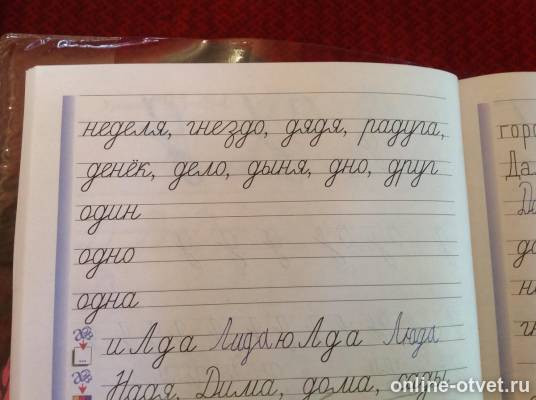 неделя, гнездо, дядя, радуга,
денёк, дело, дыня, дно, друг
один
одно
одна
и Л д а Лида ю Л д а Люда
Надя, Дима, дома, сады
горо
Да
до
н
online-otvet.ru